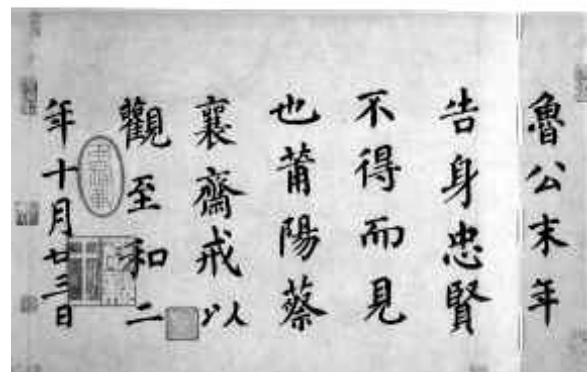 魯公末年
告身忠賢
不得而見
也莆陽蔡
襄齋戒以
觀至和二
年十月廿三日